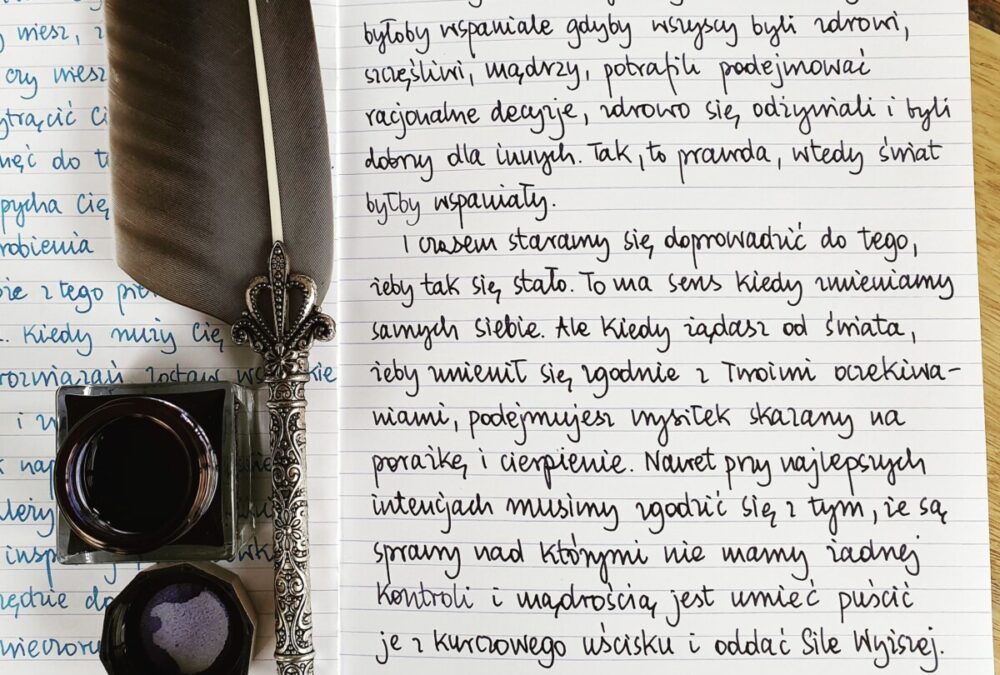 miesz, z
czy miesz
ytrącić Ci
nęć do t
pycha Cię
robienia
że z tego
. Kiedy nuży Cię
rozwiązań zostaw kie
i
nap
inspi
zędzie do
wieczoru
byłoby wspaniale gdyby wszyscy byli zdrowi,
szczęśliwi, mądrzy, potrafili podejmować
racjonalne decyzje, zdrowo się odżywiali i byli
dobrzy dla innych. Tak, to prawda, wtedy świat
byłby wspaniały.
I czasem staramy się doprowadzić do tego,
żeby tak się stało. To ma sens kiedy zmieniamy
samych siebie. Ale kiedy żądasz od świata,
żeby zmienił się zgodnie z Twoimi oczekiwa-
niami, podejmujesz wysiłek skazany na
porażkę i cierpienie. Nawet przy najlepszych
intencjach musimy zgodzić się z tym, że są
sprawy nad którymi nie mamy żadnej
kontroli i mądrością jest umieć puścić
je z kurczowego uścisku i oddać Sile Wyższej.